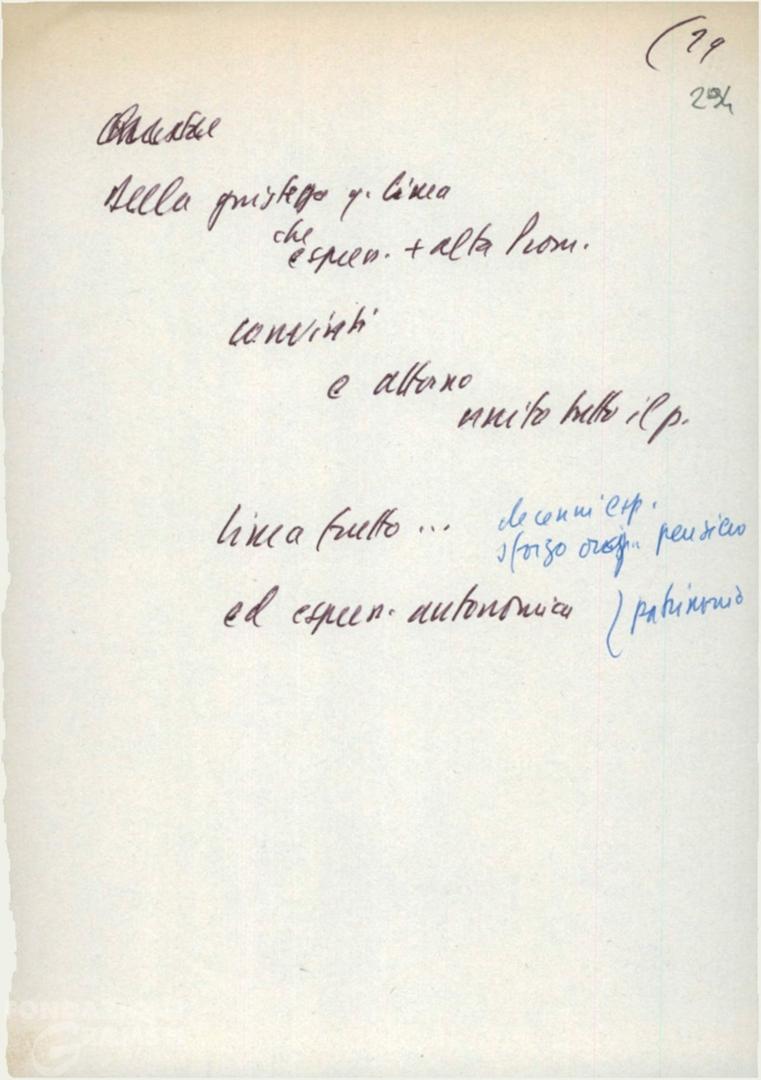 (29
294
Della giustezza q. linea
che
espress. + alta Prom.
convinti
e attorno
unito tutto il p.
linea frutto ... decenni esp.
sforzo orig. pensiero
ed espress. autonomia ) patrimonio
FONDAZIONE
GRAMSCI